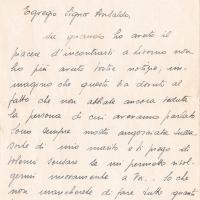 Egregio Signor Ansaldo,
da quando ho avuto il
piacere d'incontrarti a Livorno non
ho più avuto vostre notizie, im-
magino che questo sia dovuto al
fatto che non abbiate ancora veduta
la persona di cui avevamo parlato
Sono sempre molto angosciata sulla
sorte di mio marito e vi prego di
volermi scusare se mi permetto rivol-
germi nuovamente a Voi. So che
non mancherete di fare tutto quanto